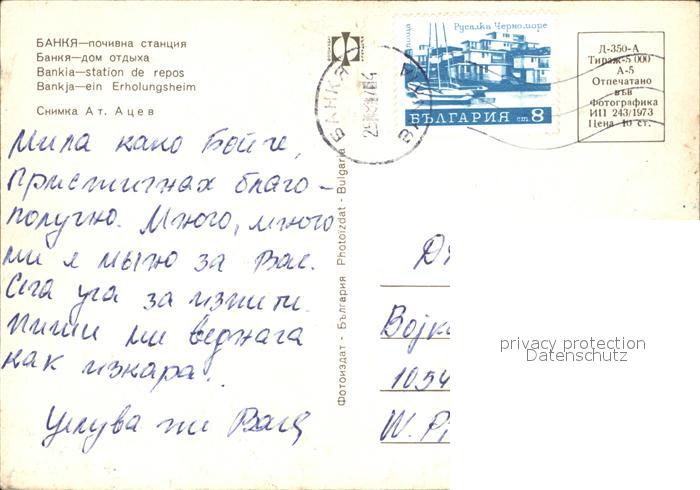 БАНКЯ—почивна станция
Банкя—дом отдыха
Bankia—station de repos
Bankja—ein Erholungsheim
Снимка Ат. Ацев
Мила како Бойче,
Пристигнах благо-
получно. Много, много
ми я мъчно за Вас.
Сега уча за изпити.
Пиши ми веднага
как изкара.
Целува ти
Фотоиздат - България Photoïzdat - Bulgaria
Русалка Черноморе
поща
БЪЛГАРИЯ ст. 8
БАНКЯ
Д-350-А
Тираж-5 000
А-5
Отпечатано
във
Фотографика
ИП 243/1973
Цена 10 ст.
Bojk
1054
W. P
privacy protection
Datenschutz